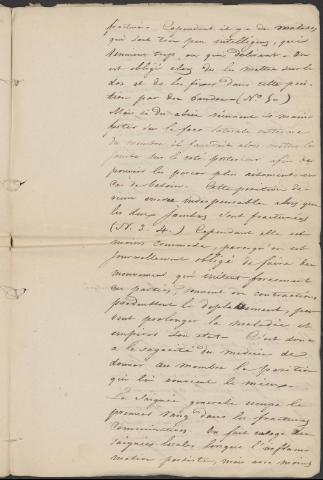 fracture. Cependant il y a des malades
qui sont très peu intelligens, qui
remuent trop, ou qui délirent. On
est obligé alors de les mettre sur le
dos et de les fixer dans cette posi-
tion par des bandes (N° 5.)
Mais si des abcès venaient se manifes-
ter sur la face latérale externe
du membre il faudrait alors mettre la
jambe sur le coté postérieur afin de
pouvoir les percer plus aisément en
cas de besoin. Cette position de-
vient encore indispensable alors que
les deux jambes sont fracturées
(N. 3. 4.) Cependant elle est
moins commode, parcequ'on est
journellement obligé de faire des
mouvemens qui irritent forcement
ces parties, amènent des contractions
produisent le déplacement, peu-
vent prolonger la maladie et
empirer son état. C'est donc
à la sagacité du médecin de
donner au membre la position
qui lui convient le mieux.
La saignée générale occupe le
premier rang dans les fractures
comminutives. On fait usage des
saignées locales lorsque l'inflam-
mation persiste, mais avec moins